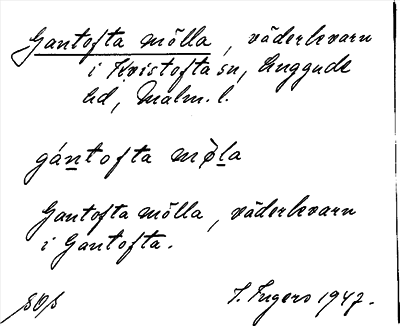 Gantofta mölla, väderkvarn
i Kristofta sn, Luggude
hd, Malm. l.
gántofta mø̀la
Gantofta mölla, väderkvarn
i Gantofta.
SOS
I. Ingers 1947.